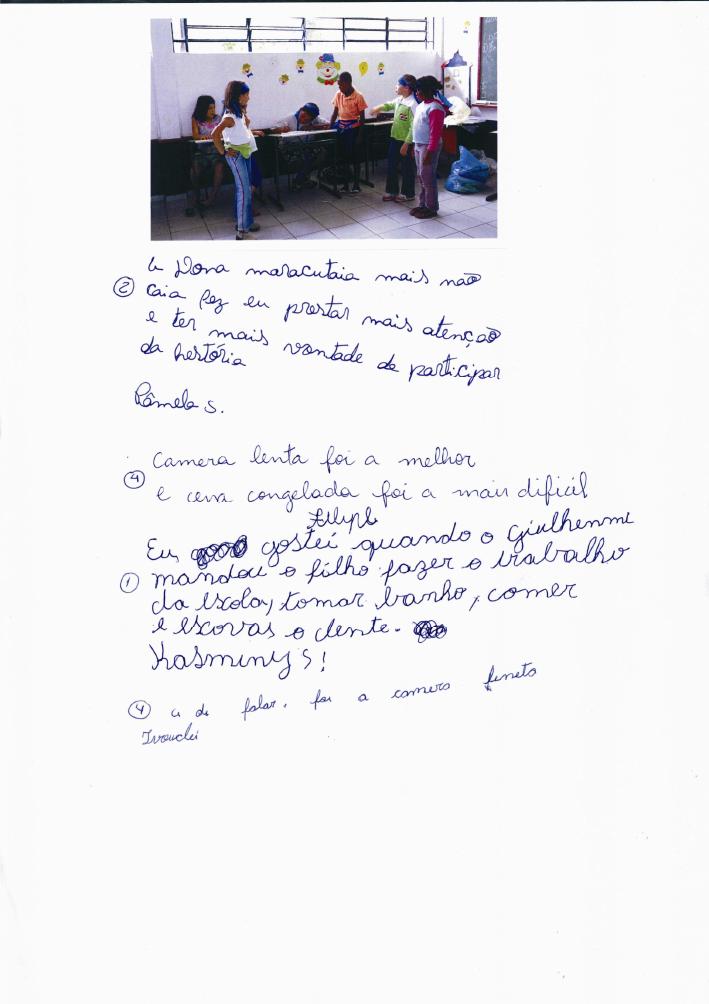 a Dona maracutaia mais não
② caia fez eu prestar mais atenção
e ter mais vontade de participar
da hestória
Pâmela S.
Camera lenta foi a melhor
④ e cena congelada foi a mais dificil
Felipe
Eu gostei quando o Giulhenme
① mandou o filho fazer o trabalho
da escola, tomar banho, comer
e escovas o dente.
Kasminy S!
④ a de falar. foi a camera